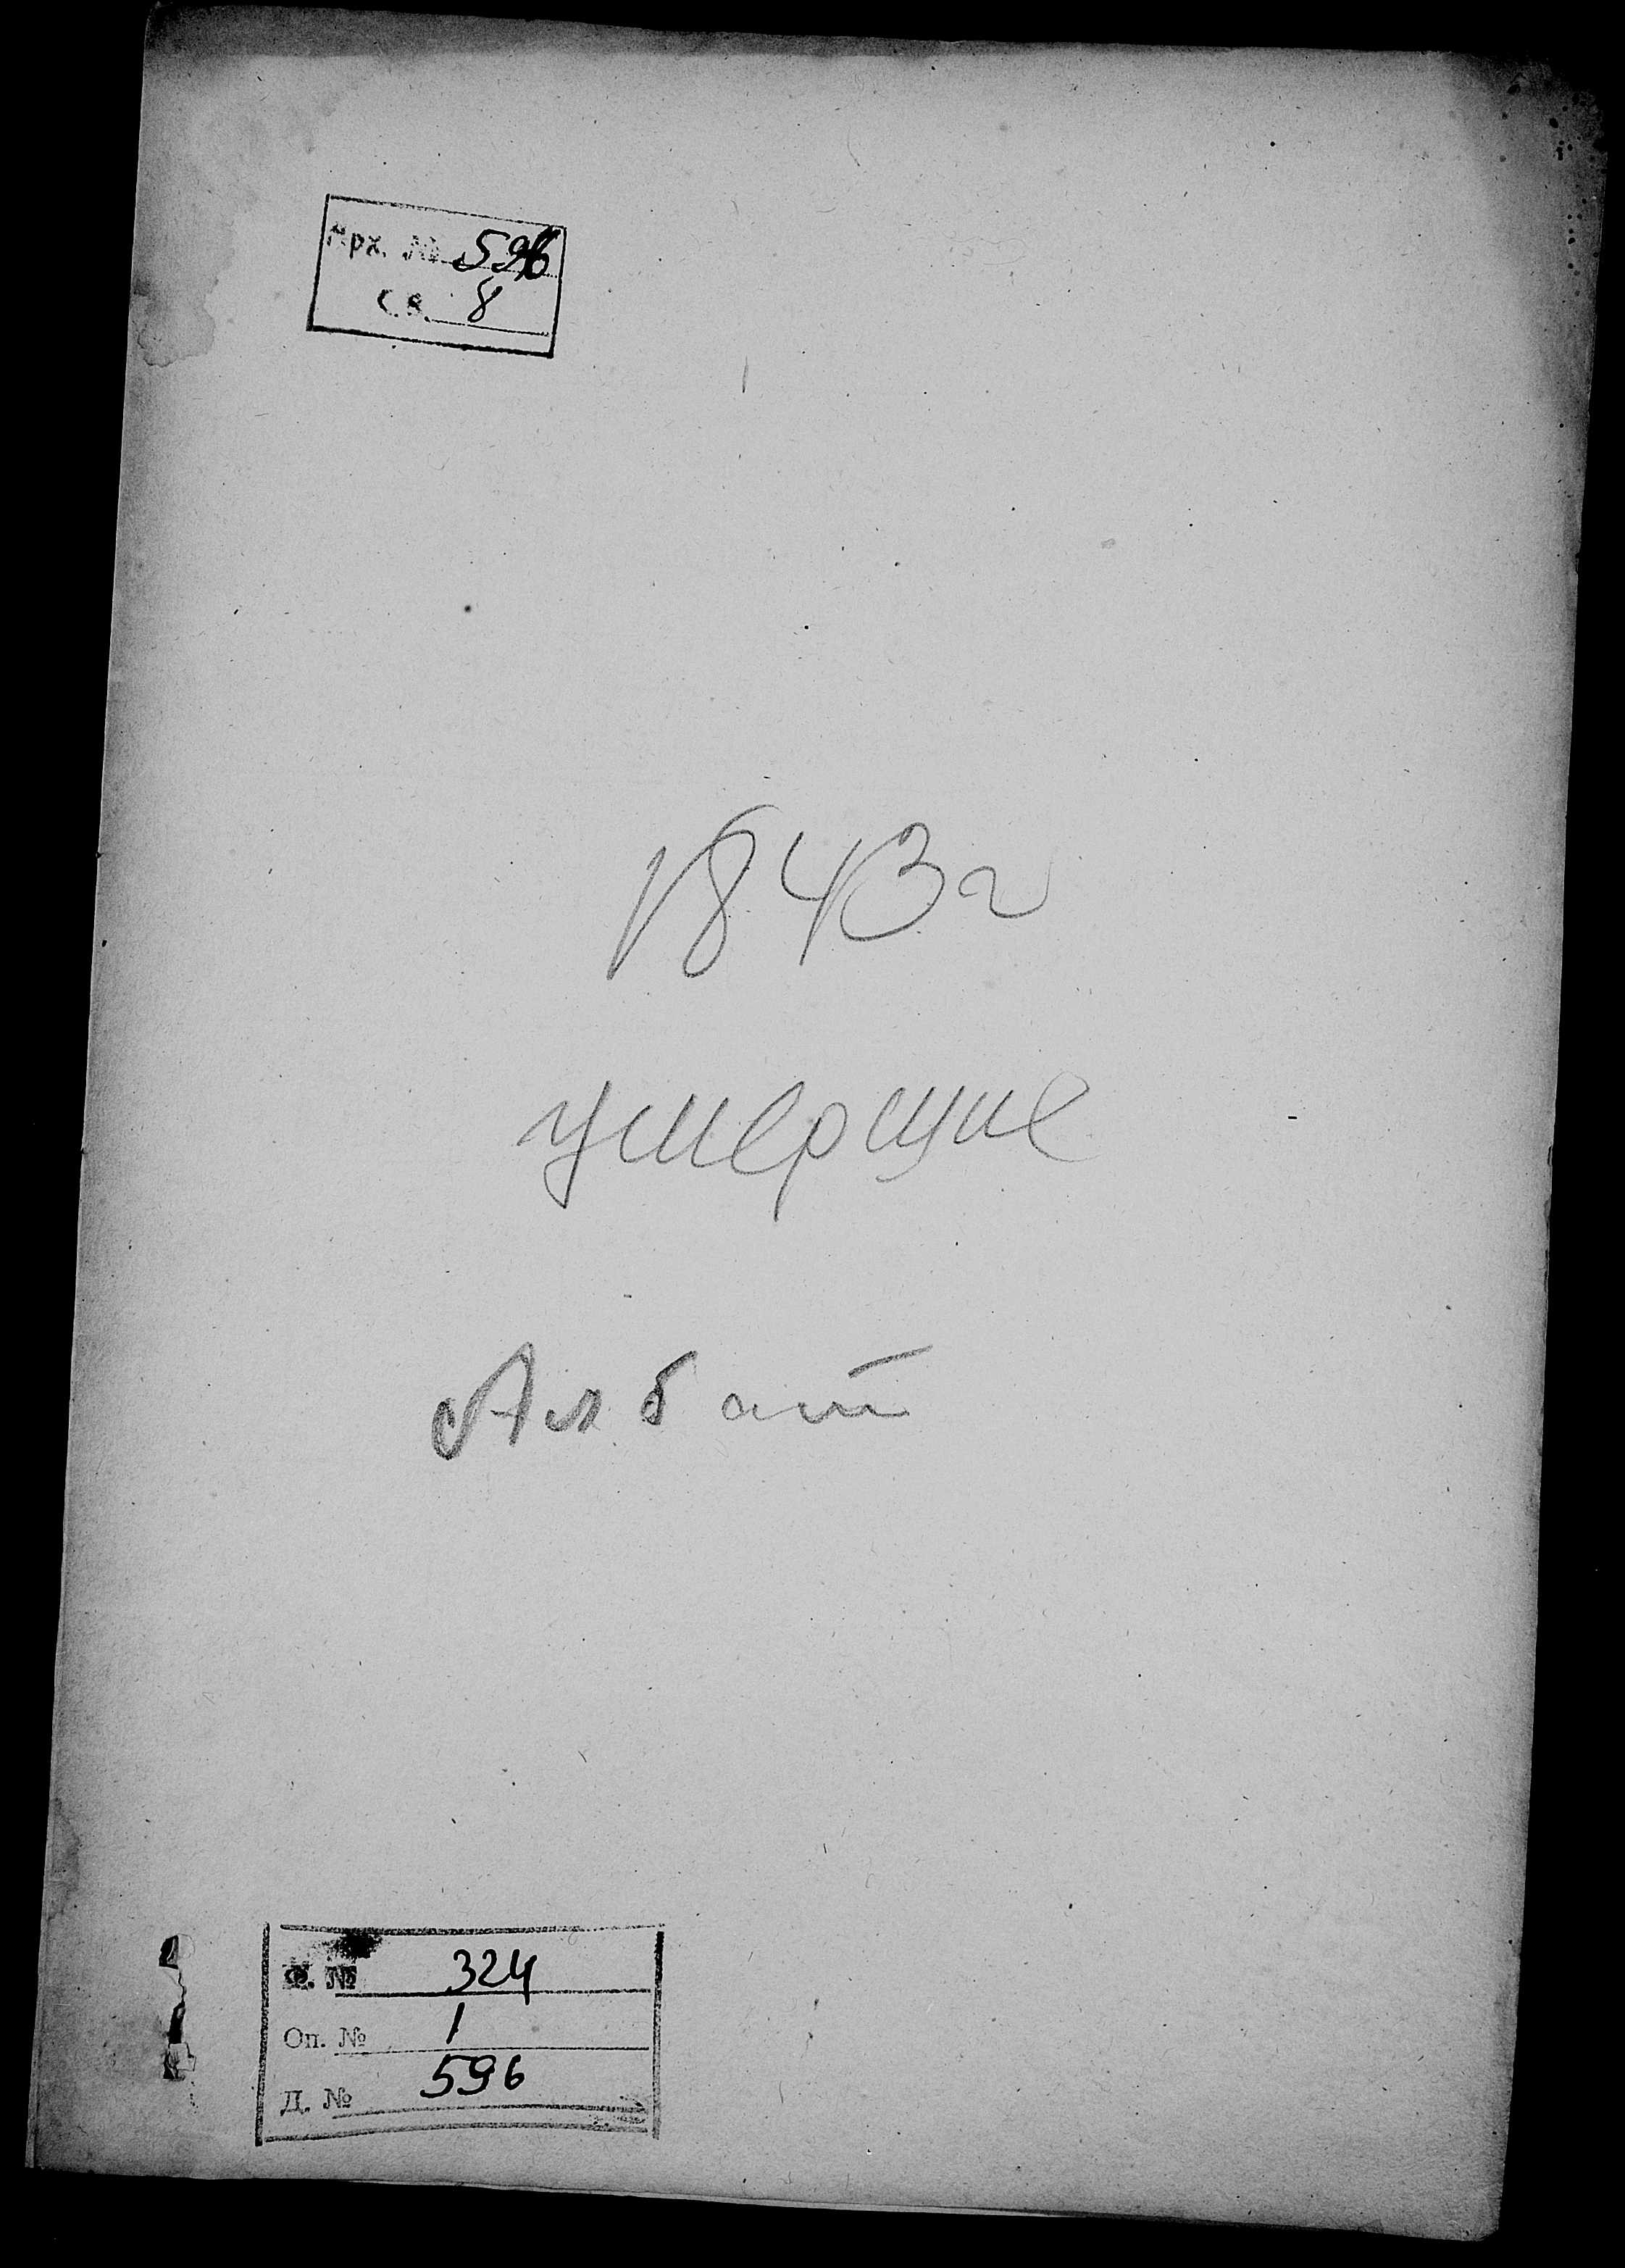 Арх. № 596
Св. 8
1843 г
умерщие
Албат
Ф. № 324
Оп. № 1
Д. № 596